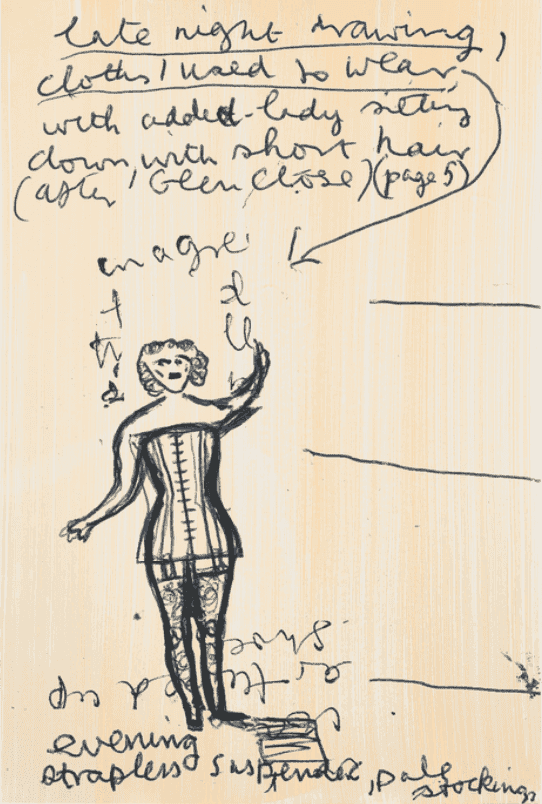 late night drawing,
cloths I used to wear,
with added lady sitting
down, with short hair
(after, Glen Close) (page 5)
evening
strapless suspender, pale
stockings